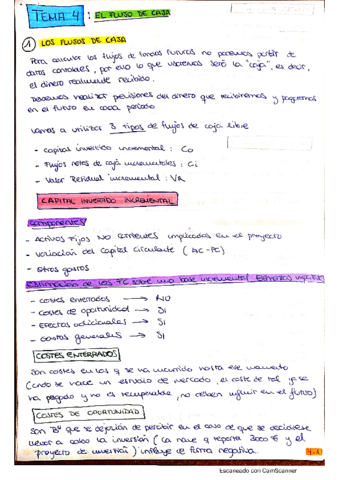 TEMA 4: EL FLUJO DE CAJA
① LOS FLUJOS DE CAJA
Para calcular los flujos de fondos futuros no podemos partir de
datos contables, por eso lo que usaremos será la "caja", es decir,
el dinero realmente recibido.
Debemos realizar previsiones del dinero que recibiremos y pagaremos
en el futuro en cada periodo
Vamos a utilizar 3 tipos de flujos de caja libre
- Capital invertido incremental: Co
- Flujos netos de caja incrementales: Ci
- Valor Residual incremental: VR
CAPITAL INVERTIDO INCREMENTAL
Componentes
- Activos Fijos NO corrientes implicados en el proyecto
- Variación del Capital Circulante (AC-PC)
- Otros gastos
Estimación de los FC sobre una base incremental
- Costes enterrados → NO
- Costes de oportunidad → Si
- Efectos adicionales → Si
- Costes generales → Si
COSTES ENTERRADOS
Son costes en los q se ha incurrido hasta ese momento
(cndo se hace un estudio de mercado, el coste de tal ya se
ha pagado y no es recuperable, no deben influir en el futuro)
COSTES DE OPORTUNIDAD
Son Bº que se dejarían de percibir en el caso de que se decidiese
llevar a cabo la inversión (la nave q reporta 3000 € y el
proyecto de inversión) influye de forma negativa.
Escaneado con CamScanner